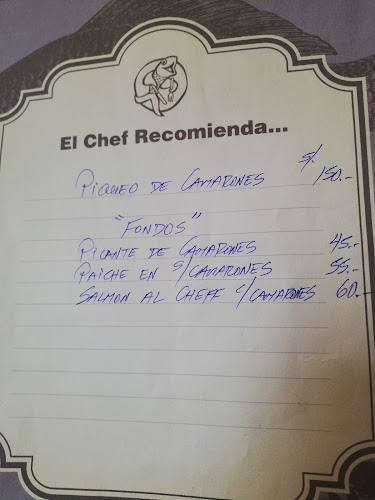 El Chef Recomienda...
S/.
PIQUEO DE CAMARONES 150.-
"FONDOS"
PICANTE DE CAMARONES 45.-
PAICHE EN S/CAMARONES 55.-
SALMON AL CHEFF C/CAMARONES 60.-